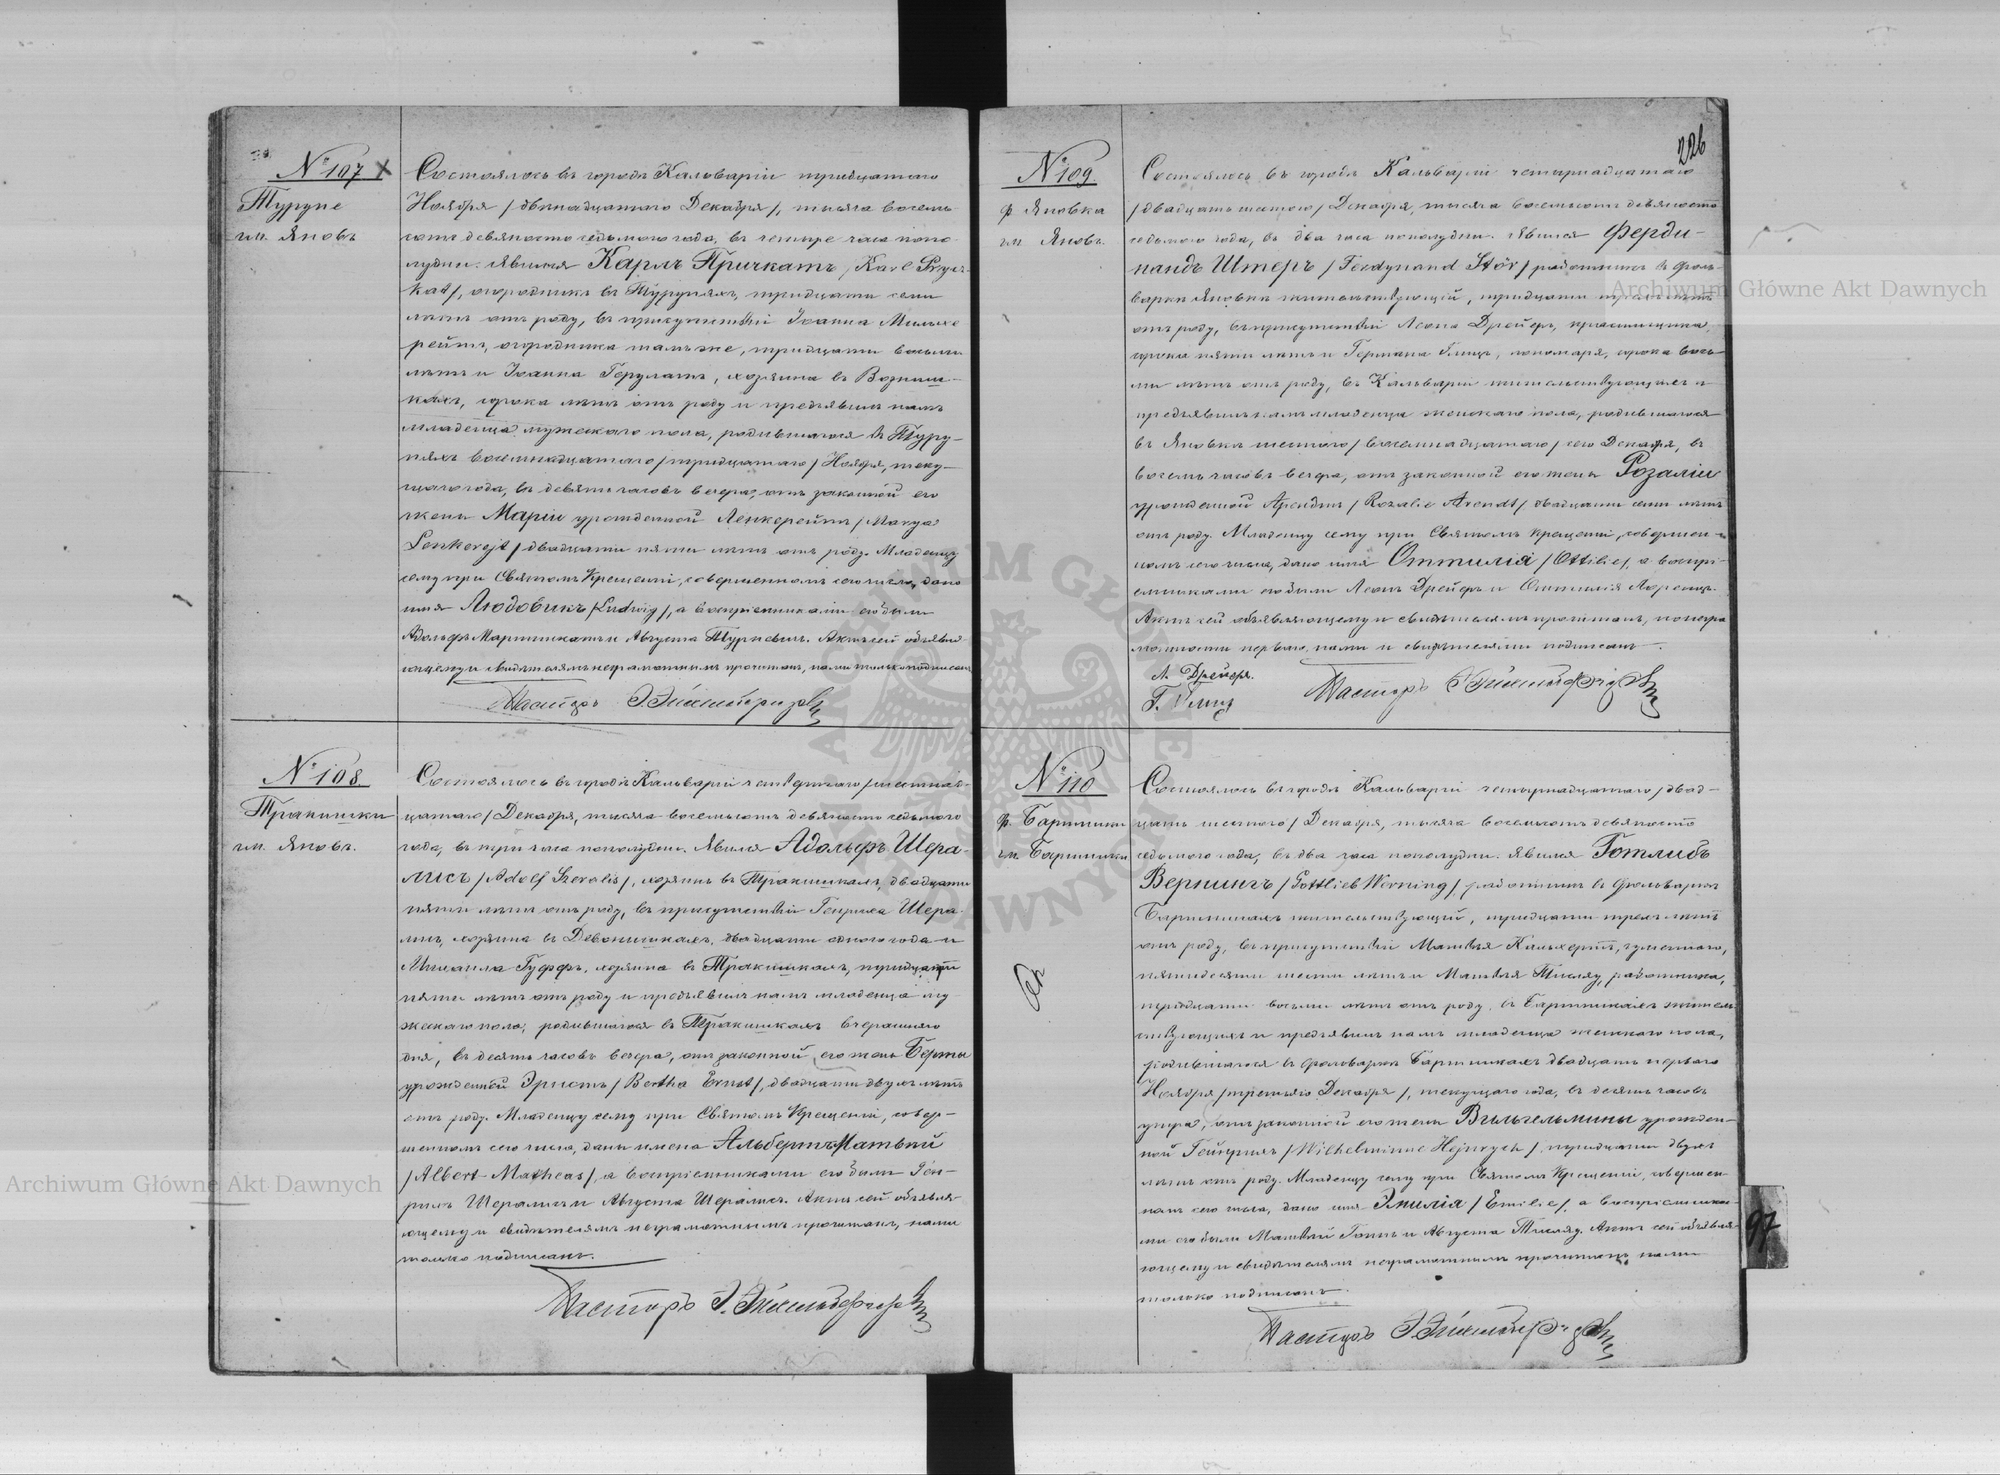 № 107 ×
Турупе
гм. Яновъ
Состоялось въ городѣ Кальваріи тридцатаго
Ноября /двѣнадцатаго Декабря/, тысяча восемь-
сотъ девяносто седьмого года, въ четыре часа попо-
лудни. Явился Карлъ Причкатъ /Karl Prycz-
kat/, огородникъ въ Турупяхъ, тридцати семи
лѣтъ отъ роду, въ присутствіи Іоанна
рейтъ, огородника тамъ же, тридцати восьми
лѣтъ и Іоанна Герулатъ, хозяина въ
сорока лѣтъ отъ роду и предъявилъ намъ
младенца мужескаго пола, родившагося въ Туру-
пяхъ восемнадцатаго /тридцатаго/ Ноября, теку-
щаго года, въ девять часовъ вечера, отъ законной его
жены Маріи урожденной Ленкерейтъ /Marya
Lenkerejt/ двадцати пяти лѣтъ отъ роду. Младенцу
сему при Святомъ Крещеніи, совершенномъ сего числа, дано
имя Людовикъ /Ludwig/, а воспріемниками его были
Адольфъ Мартишкатъ и Августа Актъ сей объявля-
ющему и свидѣтелямъ неграмотнымъ прочитанъ, нами только подписанъ.
Пасторъ
№ 108.
Тракишки
гм. Яновъ.
Состоялось въ городѣ Кальваріи четвертаго /шестнад-
цатаго/ Декабря, тысяча восемьсотъ девяносто седьмого
года, въ три часа пополудни. Явился Адольфъ Шера-
лисъ /Adolf Szeralis/, хозяинъ въ Тракишкахъ, двадцати
пяти лѣтъ отъ роду, въ присутствіи Генриха Шера-
лисъ, хозяина въ Девонишкахъ, двадцати одного года и
Михаила Гуффъ, хозяина въ Тракишкахъ, тридцати
пяти лѣтъ отъ роду и предъявилъ намъ младенца му-
жескаго пола, родившагося въ Тракишкахъ вчерашняго
дня, въ десять часовъ вечера, отъ законной его жены Берты
урожденной Эрнстъ /Bertha Ernst/, двадцати двухъ лѣтъ
отъ роду. Младенцу сему при Святомъ Крещеніи, совер-
шенномъ сего числа, даны имена Альбертъ Матвѣй
/Albert-Matheas/, а воспріемниками его были Ген-
рихъ Шералисъ и Августа Шералисъ. Актъ сей объявля-
ющему и свидѣтелямъ неграмотнымъ прочитанъ, нами
только подписанъ.
Пасторъ
226
№ 109.
ф. Яновка
гм. Яновъ.
Состоялось въ городѣ Кальваріи четырнадцатаго
/двадцать шестого/ Декабря, тысяча восемьсотъ девяносто
седьмого года, въ два часа пополудни. Явился Ферди-
нандъ Штеръ /Ferdynand Stör/ работникъ въ фоль-
варкѣ Яновкѣ жительствующій, тридцати лѣтъ
отъ роду, въ присутствіи Леона Дрейеръ, красильщика,
сорока пяти лѣтъ и Германа Глицъ, пономаря, сорока вось-
ми лѣтъ отъ роду, въ Кальваріи жительствующихъ и
предъявилъ намъ младенца женскаго пола, родившагося
въ Яновкѣ шестого /восемнадцатаго/ сего Декабря, въ
восемь часовъ вечера, отъ законной его жены Розаліи
урожденной Арендтъ /Rozalie Arendt/ двадцати семи лѣтъ
отъ роду. Младенцу сему при Святомъ Крещеніи, совершен-
номъ сего числа, дано имя Оттилія /Ottilie/, а воспрі-
емниками его были Леонъ Дрейеръ и Оттилія
Актъ сей объявляющему и свидѣтелямъ прочитанъ, по негра-
мотности перваго, нами и свидѣтелями подписанъ.
Л. Дрейеръ.
Г. Глицъ
Пасторъ
№ 110
ф. Бартники
гм. Бартники
Состоялось въ городѣ Кальваріи четырнадцатаго /двад-
цать шестого/ Декабря, тысяча восемьсотъ девяносто
седьмого года, въ два часа пополудни. Явился Готлибъ
Вернингъ /Gottlieb Werning/, работникъ въ фольваркѣ
Бартникахъ жительствующій, тридцати трехъ лѣтъ
отъ роду, въ присутствіи Матвѣя Кальхертъ, гуменнаго,
пятидесяти шести лѣтъ и Матвѣя работника,
тридцати восьми лѣтъ отъ роду, въ Бартникахъ житель-
ствующихъ и предъявилъ намъ младенца женскаго пола,
родившагося въ фольваркѣ Бартникахъ двадцать перваго
Ноября /третьяго Декабря/, текущаго года, въ десять часовъ
утра, отъ законной его жены Вильгельмины урожден-
ной Гейнрихъ /Wilhelminne Hejnrych/, тридцати двухъ
лѣтъ отъ роду. Младенцу сему при Святомъ Крещеніи, совершен-
номъ сего числа, дано имя Эмилія /Emilie/, а воспріемника-
ми его были Матвѣй и Августа Актъ сей объявля-
ющему и свидѣтелямъ неграмотнымъ прочитанъ, нами
только подписанъ.
Пасторъ
97
Archiwum Główne Akt Dawnych
Archiwum Główne Akt Dawnych
ARCHIWUM GŁÓWNE AKT DAWNYCH